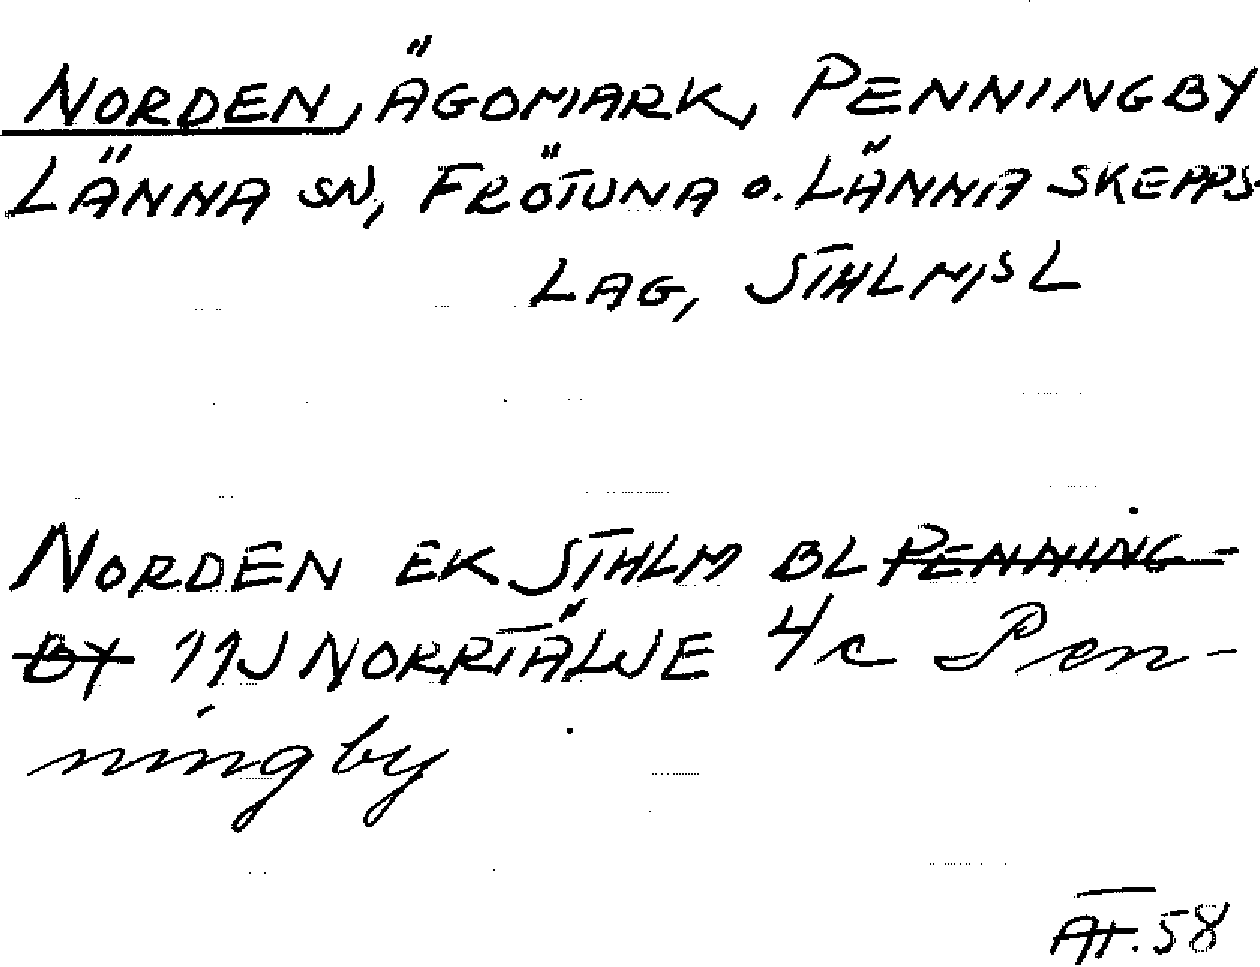 NORDEN, ÄGOMARK, PENNINGBY
LÄNNA SN, FRÖTUNA O. LÄNNA SKEPPS
LAG, STHLMS L
NORDEN EK STHLM BL PENNING-
BY 11J NORRTÄLJE 4c Pen-
ningby
AT. 58